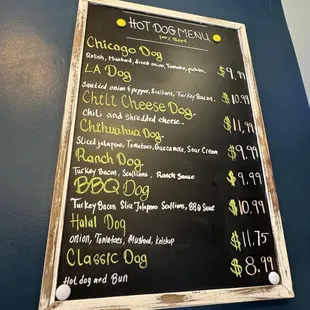 HOT DOG MENU
Beef
Chicago Dog
Relish, Mustard, diced onion, Tomato, pickles. $9.99
LA Dog
Sautéed onion & pepper, Scallions, Turkey Bacon. $10.99
Chili Cheese Dog.
Chili and shredded cheese. $11.99
Chihuahua Dog.
Sliced jalapeno, Tomatoes, Guacamole, Sour Cream $9.99
Ranch Dog.
Turkey Bacon, Scallions, Ranch Sauce $9.99
BBQ Dog
Turkey Bacon Slice Jalapeno Scallions, BBQ Sauce $10.99
Halal Dog
onion, Tomatoes, Mustard, ketchup $11.75
Classic Dog
Hot dog and Bun $8.99